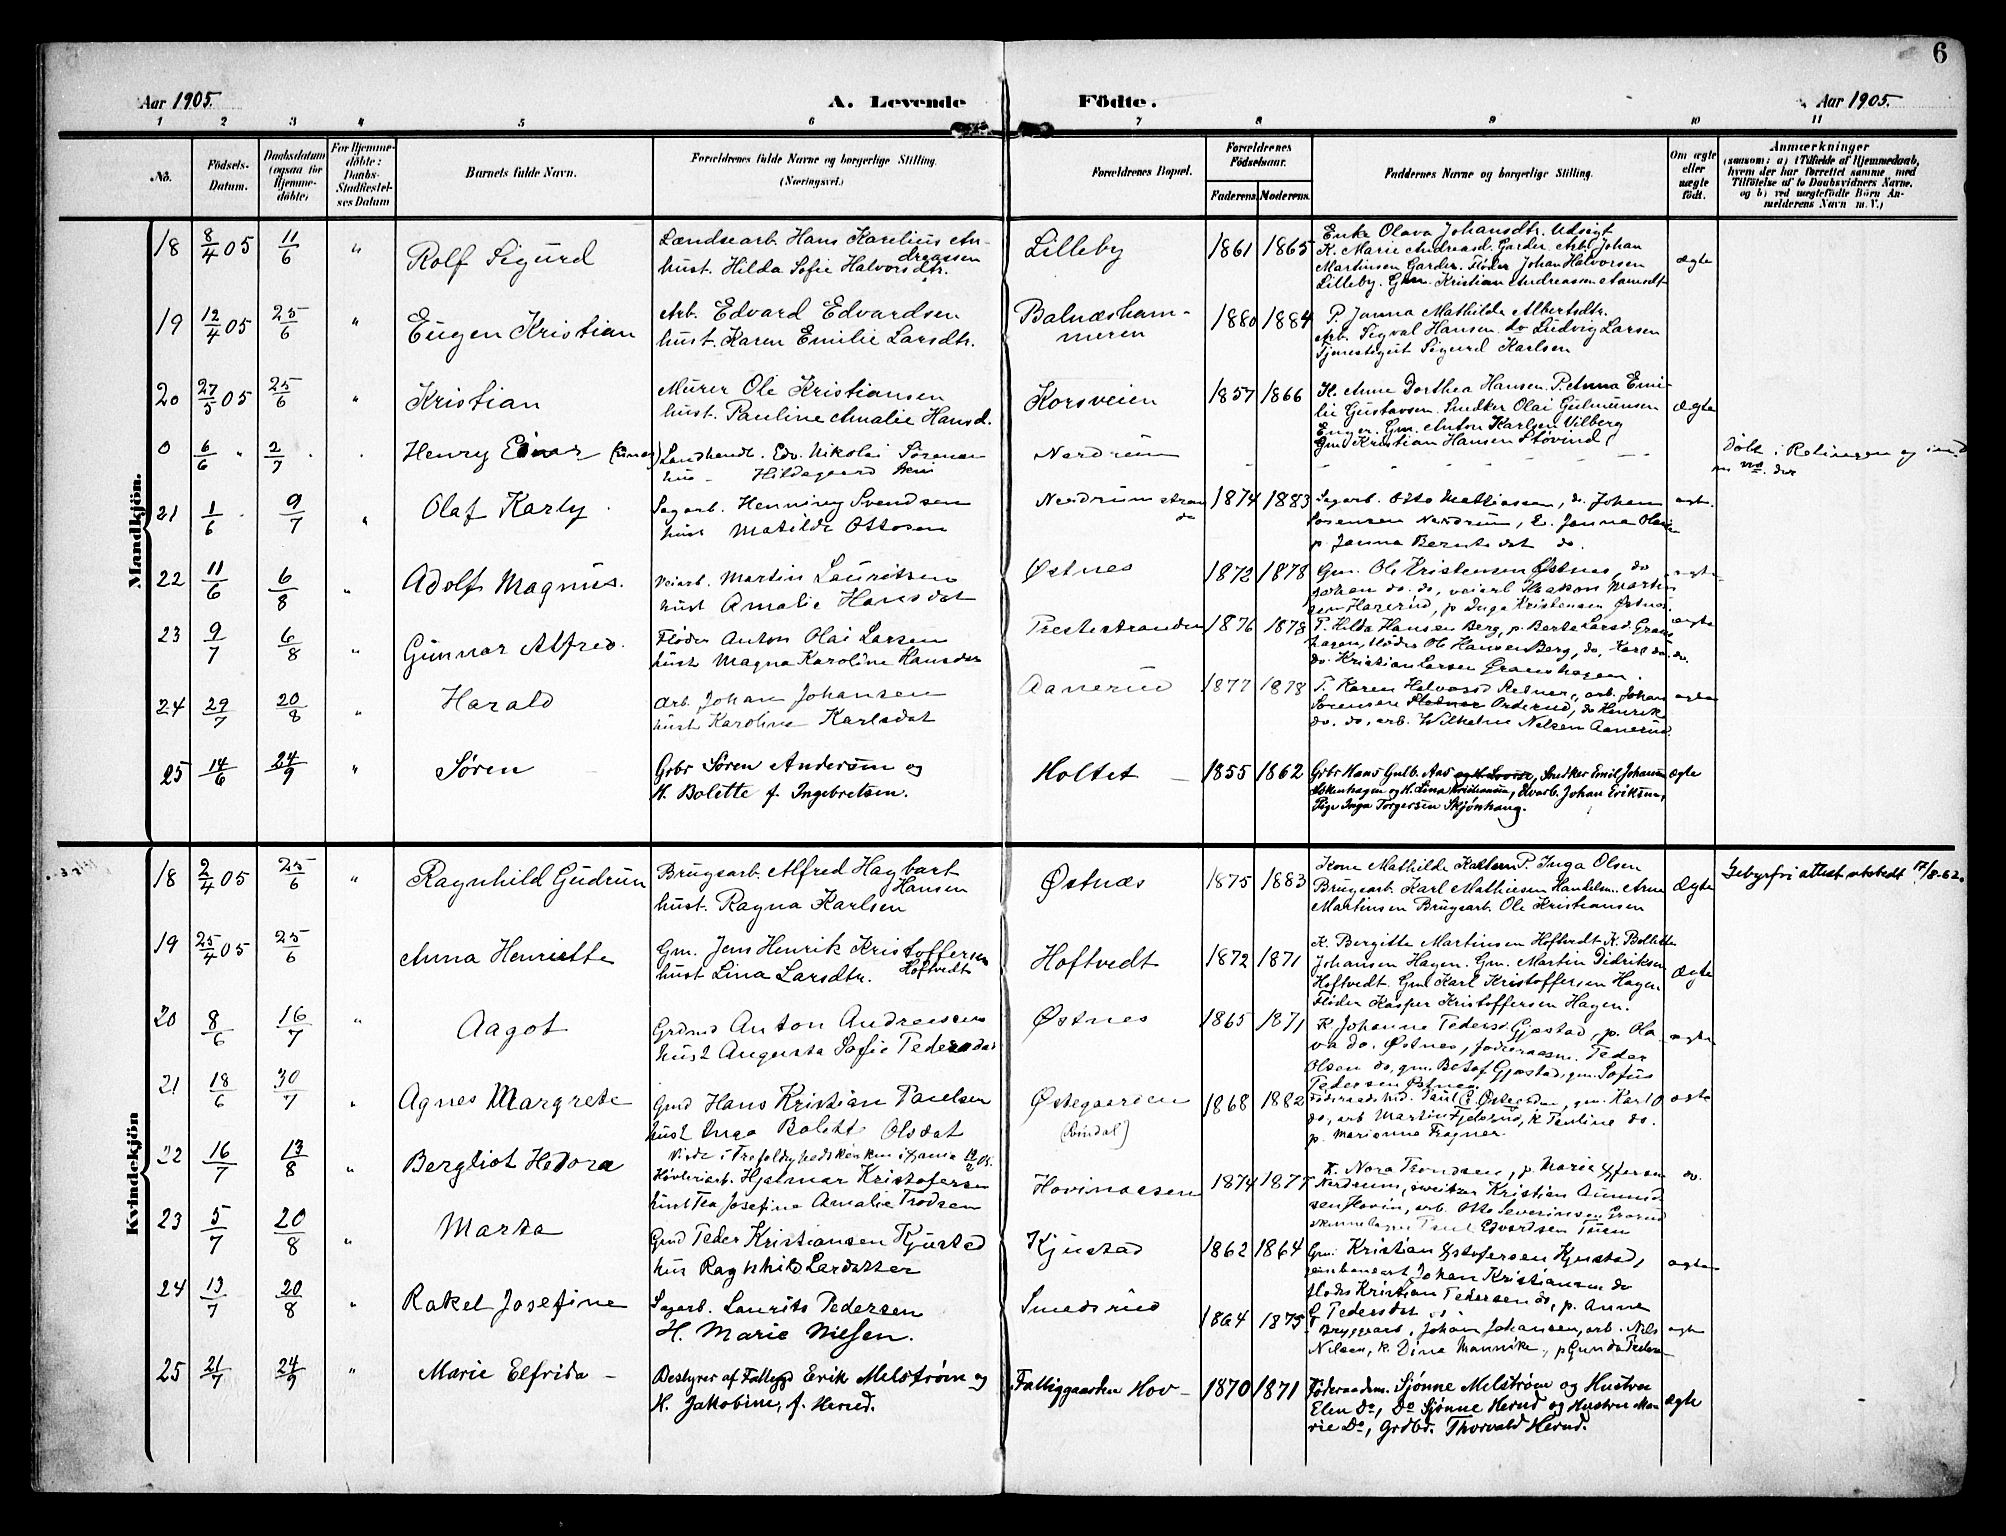 6
Aar 1905.
A. Levende Födte.
Aar 1905.
1 2 3 4 5 6 7 8 9 10 11
No.
Födsels-Datum.
Daabsdatum (ogsaa for Hjemme-döbte)
For Hjemme-döbte: Daabs-Stadfæstel-ses Datum
Barnets fulde Navn.
Forældrenes fulde Navne og borgerlige Stilling.
(Næringsvei.)
Forældrenes Bopæl.
Forældrenes Födselsaar.
Faderens. Moderens.
Faddernes Navne og borgerlige Stilling.
Om ægte eller uægte födt.
Anmærkninger
(saasom: a) i Tilfælde af Hjemmedaab,
hvem der har forrettet samme, med
Tilföielse af to Daabsvidners Navne.
og b) ved uægtefödte Börn An-
melderens Navn m. V.)
Mandkjön.
18 8/4 05 11/6 " Rolf Sigurd
Lændsearb. Hans Karelius An-
dreassen
hust. Hilda Sofie Halvorsdtr.
Lilleby 1861 1865
Enke Olava Johansdtr. Udsigt
K. Marie Andreasd. Garder. Arb. Johan
Martinsen Garder. Fløder Johan Halvorsen
Lilleby. Gm. Kristian Andreassen Aamodt
ægte
19 12/4 05 25/6 " Eugen Kristian
Arb. Edvard Edvardsen
hust. Karen Emilie Larsdtr.
Balnæsham-
meren
1880 1884
P. Janna Mathilde Albertsdtr.
Arb. Sigval Hansen. do Ludvig Larsen
Tjenestegut Sigurd Karlsen
20 27/5 05 25/6 " Kristian
Murer Ole Kristiansen
hust. Pauline Amalie Hansd.
Korsveien 1857 1866
K. Anne Dorthea Hansen. P. Anna Emi-
lie Gustavsen. Snedker Olai Gulmunsen
Enger. Gm. Anton Karlsen Vilberg
Gm. Kristian Hansen Støvind
ægte
0 6/6 " 2/7 Henry Einar (Einar)
Landhandl. Edv. Nikolai Sørensen
hus - Hildegaard
Nerdrum
Døbt i Retingen og
21 1/6 9/7 " Olaf Karly
Sagarb. Henning Svendsen
hust Matilde Ottosen
Nerdrumstran
do
1874 1883
Sagarb. Otto Mathiassen, do. Johan
Sørensen Nerdrum, E. Janna Olsen
p. Janna Berntsdat do.
ægte.
22 11/6 6/8 " Adolf Magnus.
Veiarb. Martin Lauritsen
hust Amalie Hansdat
Østnes 1872 1878
Gm. Ole Kristensen Østnes, do
Johan do. do, veiarb Haakon Marti-
sen Hagerud, p Inga Kristensen Østnes.
ægte
23 9/7 6/8 " Gunnar Alfred.
Fløder Anton Olai Larsen
hust Magna Karoline Hansdat
Prestestranden 1876 1878
P. Hilda Hansen Berg, p. Berte Larsd. Grans
hagen, fløder Ole Hansen Berg, do, Karl do. do.
do. Kristian Larsen Granshagen.
ægte
24 29/7 20/8 " Harald
Arb. Johan Johansen
hust Karoline Karlsdat
Aanerud 1877 1878
P. Karen Halvorsd Retner, arb. Johan
Sørensen Orderud, do Henrik
do. do, arb. Wilhelm Nelsen Aanerud.
ægte
25 14/6 24/9 " Søren
Grbr Søren Andersen og
H. Bolette f. Ingebretsen.
Holtet - 1855 1862
Grbr Hans Gulb. Aas , Snedker Emil Johansen
Løkenhagen og H. Lina Kristiansen, Elvarb. Johan Eriksen,
Pige Inga Torgersen Skjønhaug.
ægte
Kvindekjön
18 2/4 05 25/6 " Ragnhild Gudrun
Brugsarb. Alfred Hagbart
Hansen
hust. Ragna Karlsen
Østnæs 1875 1883
Kone Mathilde Karlsen P. Inga Olsen
Brugsarb. Karl Mathiesen Handelsm. Arne
Martinsen Brugsarb. Ole Kristiansen
Ægte
Gebyrfri attest utstedt 17/8-62.
19 25/4 05 25/6 Anna Henriette
Gm. Jens Henrik Kristoffersen
Hoftvedt
hust Lina Larsdtr.
Hoftvedt 1872 1871
K. Bergitte Martinsen Hoftvedt K. Bolette
Johansen Hagen. Gm. Martin Didriksen
Hoftvedt. Gml Karl Kristoffersen Hagen.
Fløder Kasper Kristoffersen Hagen.
Ægte
20 8/6 16/7 " Aagot
Anton Andreassen
hust Augusta Sofie Pedersdat
Østnes 1865 1871
K. Johanne Pedersd. Gjøstad, p. Ola-
va do. Østnes, føderaadsm. Peder
Olsen do, gm. Gjøstad, gm. Sofus
Pedersen Østnes
ægte
21 18/6 30/7 " Agnes Margrete
Gmd Hans Kristian Paulsen
hust Inga Bolette Olsdat
Østegaarden
(Rindal)
1868 1882
Føderaadsmd. Paul Østegaarden, gm. Karl O
do, arb Martin Fjelsrud, k Pauline do.
p. Marianne Fragner.
ægte
22 16/7 13/8 " Bergliot Hedora
Viede i Trefoldighedskirken i Kania
Høvleriarb. Hjalmar Kristofersen
hust Tea Josefine Amalie Trodsen
Hovinaasen 1874 1877
K. Nora Trondsen, p. Marie
Nerdrum, Kristian
sen Hovin, arb. Otto Severinsen
Edvardsen Tuen
do.
23 5/7 20/8 " Marta
Gmd Peder Kristiansen Kjustad
hus Ragnhild Larsdatter
Kjustad 1862 1864
Gm. Kristian Kristofersen Kjustad,
Johan Kristiansen do
fløder Kristian Pedersen do, p. Anne
Pedersdat
ægte
24 13/7 20/8 " Rakel Josefine
Sagarb. Laurits Pedersen
H. Marie Nielsen.
Smedsrud 1864 1875
Bryggearb. Johan Johansen, arb. Nils
Nilsen, k. Dina Mannike, p Gunda Peders
ægte
25 21/7 24/9 " Marie Elfrida -
Bestyrer af Fattigg Erik Melstrøm og
H. Jakobine, f. Herud.
Fattiggaarden Hov - 1870 1871
Føderaadsm. Sjønne Melstrøm og Hustru
Elen Do, Do Sjønne Herud og Hustru Ma-
rie Do, Grdbr. Thorvald Herud.
ægte